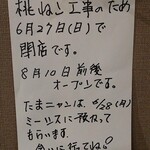 桃ねこ工事のため
6月27日(日)で
閉店です。
8月10日前後
オープンです。
たまニャンは、6/28(月)
ミーツスに預ねて
もらいます。
会いに行ってね♡